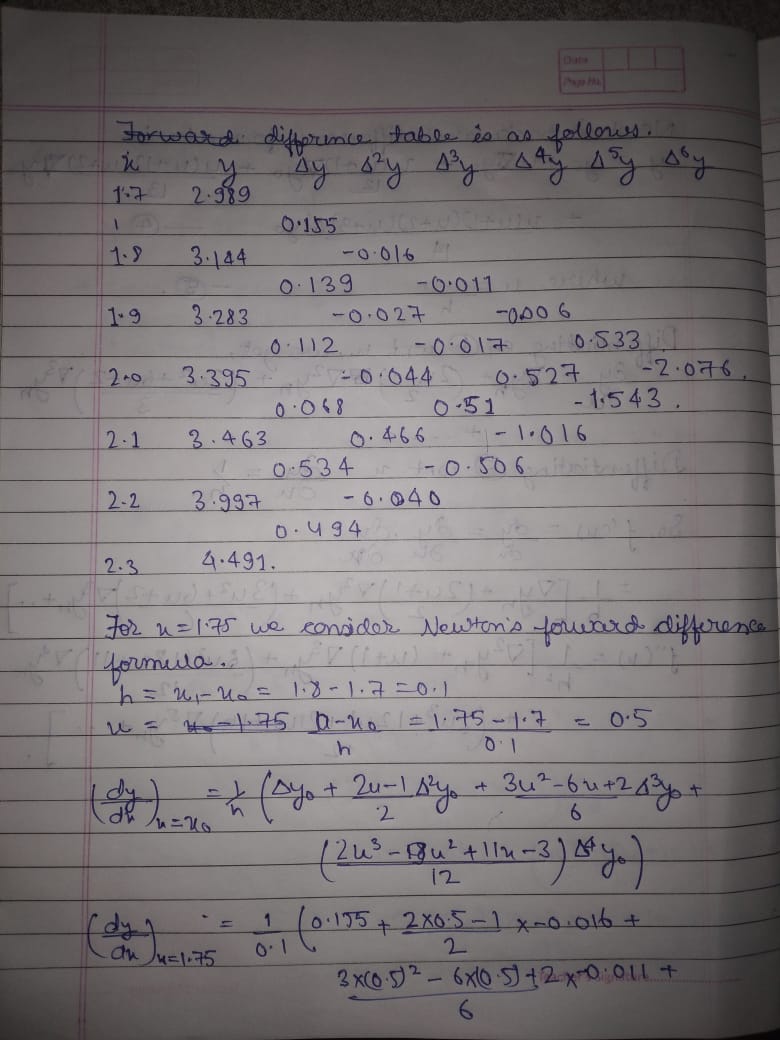 Date
Page No.
Forward difference table is as follows.
x y Δy Δ²y Δ³y Δ⁴y Δ⁵y Δ⁶y
1.7 2.989
0.155
1.8 3.144 -0.016
0.139 -0.011
1.9 3.283 -0.027 -0.006
0.112 -0.017 0.533
2.0 3.395 -0.044 0.527 -2.076.
0.068 0.51 -1.543.
2.1 3.463 0.466 -1.016
0.534 -0.506
2.2 3.997 -0.040
0.494
2.3 4.491.
For x=1.75 we consider Newton's forward difference
formula.
h = x₁-x₀ = 1.8-1.7 = 0.1
u = x₀-1.75 (a-x₀)/h = (1.75-1.7)/0.1 = 0.5
(dy/dx)x=x₀ = 1/h (Δy₀ + (2u-1)/2 Δ²y₀ + (3u²-6u+2)/6 Δ³y₀ +
((2u³-9u²+11u-3)/12) Δ⁴y₀)
(dy/dx)x=1.75 = 1/0.1 (0.155 + (2×0.5-1)/2 × -0.016 +
(3×(0.5)² - 6×(0.5)+2)/6 × -0.011 +